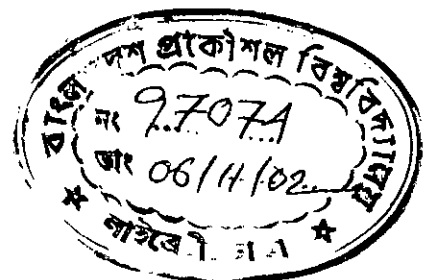 বাংলাদেশ প্রকৌশল বিশ্ববিদ্যালয়
নং 97074
তাং 06/11/02
লাইব্রেরী